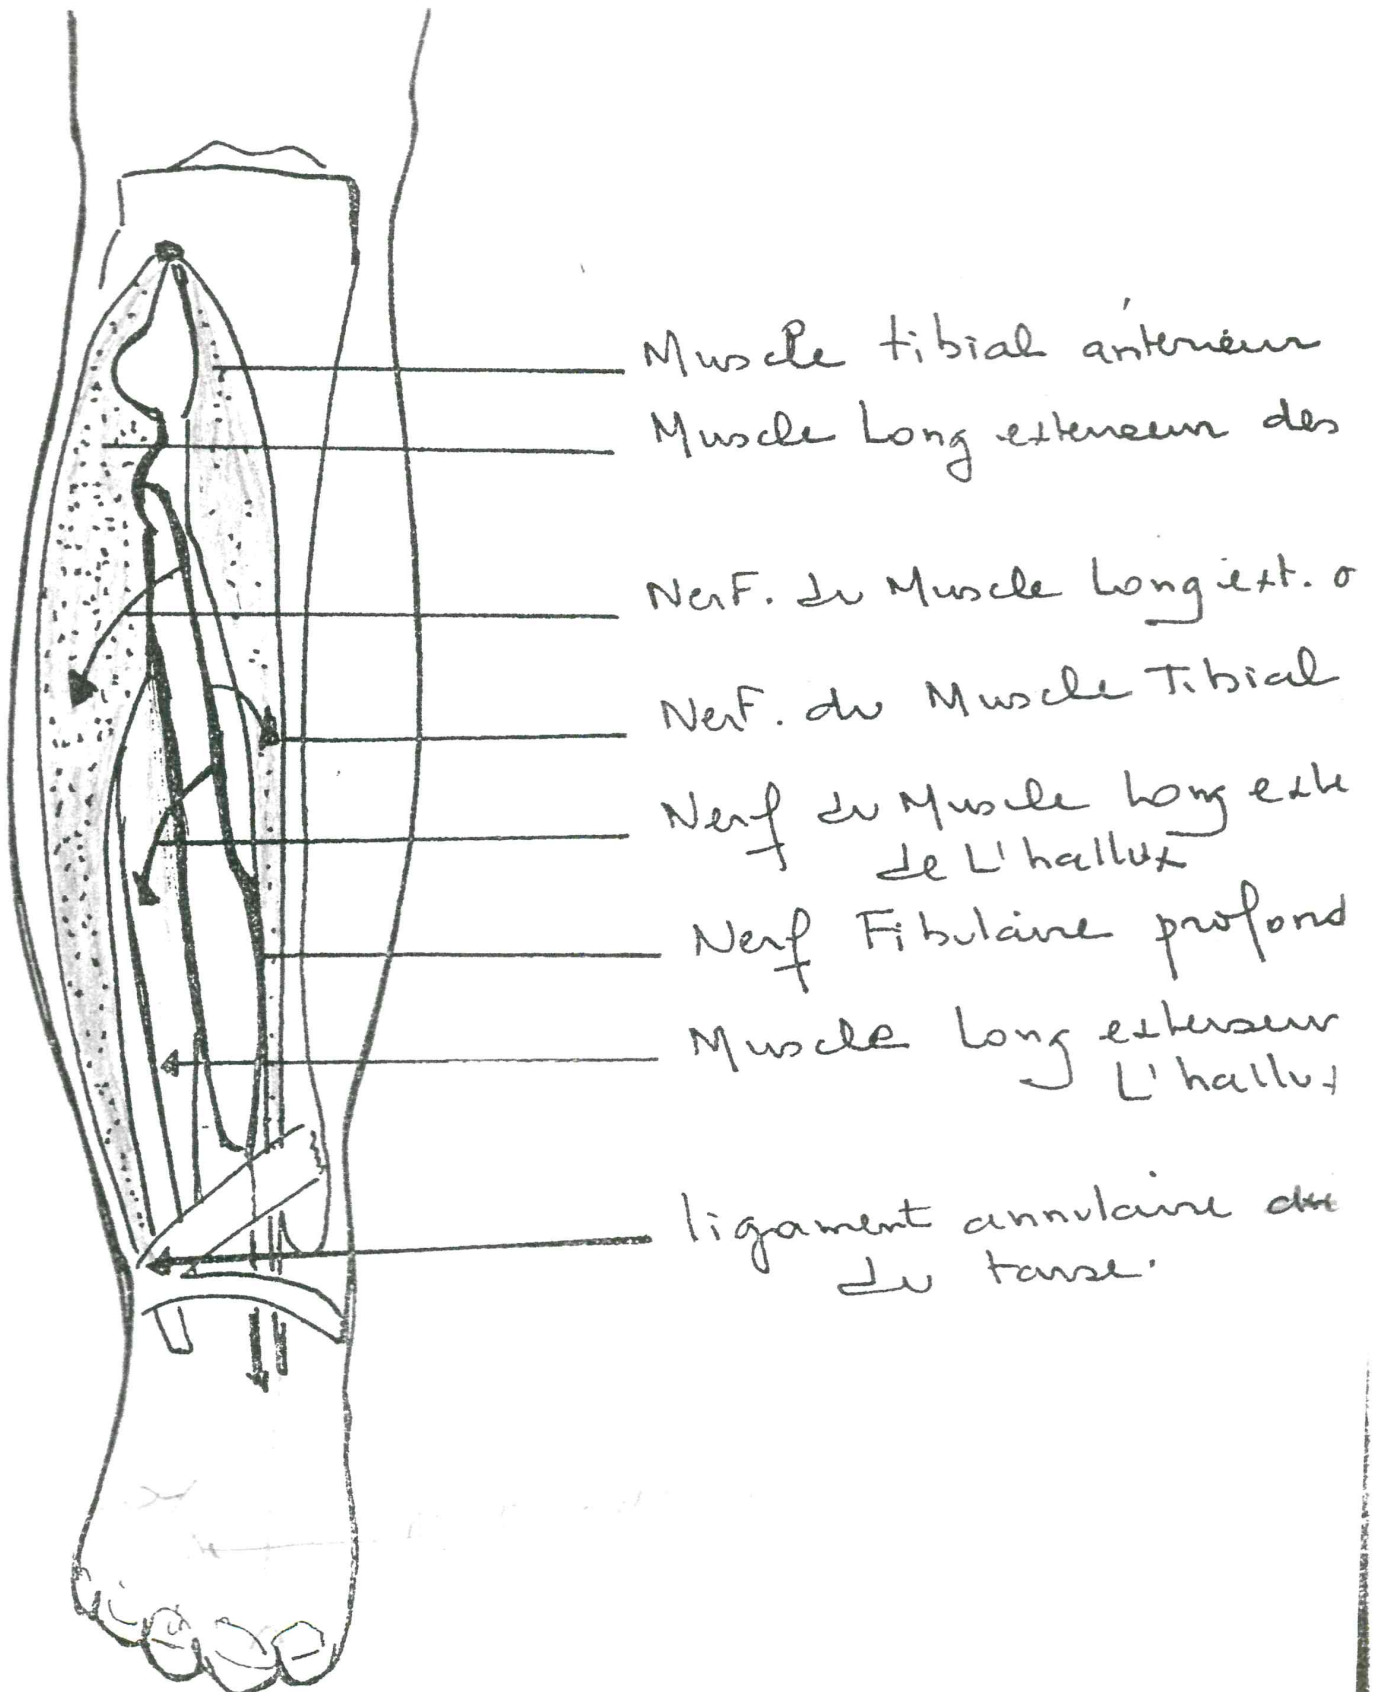 Muscle tibial antérieur
Muscle Long extenseur des
Nerf. du Muscle Long ext. o
Nerf. du Muscle Tibial
Nerf du Muscle Long exte
de L'hallux
Nerf Fibulaire profond
Muscle Long extenseur
L'hallux
ligament annulaire
du tarse.